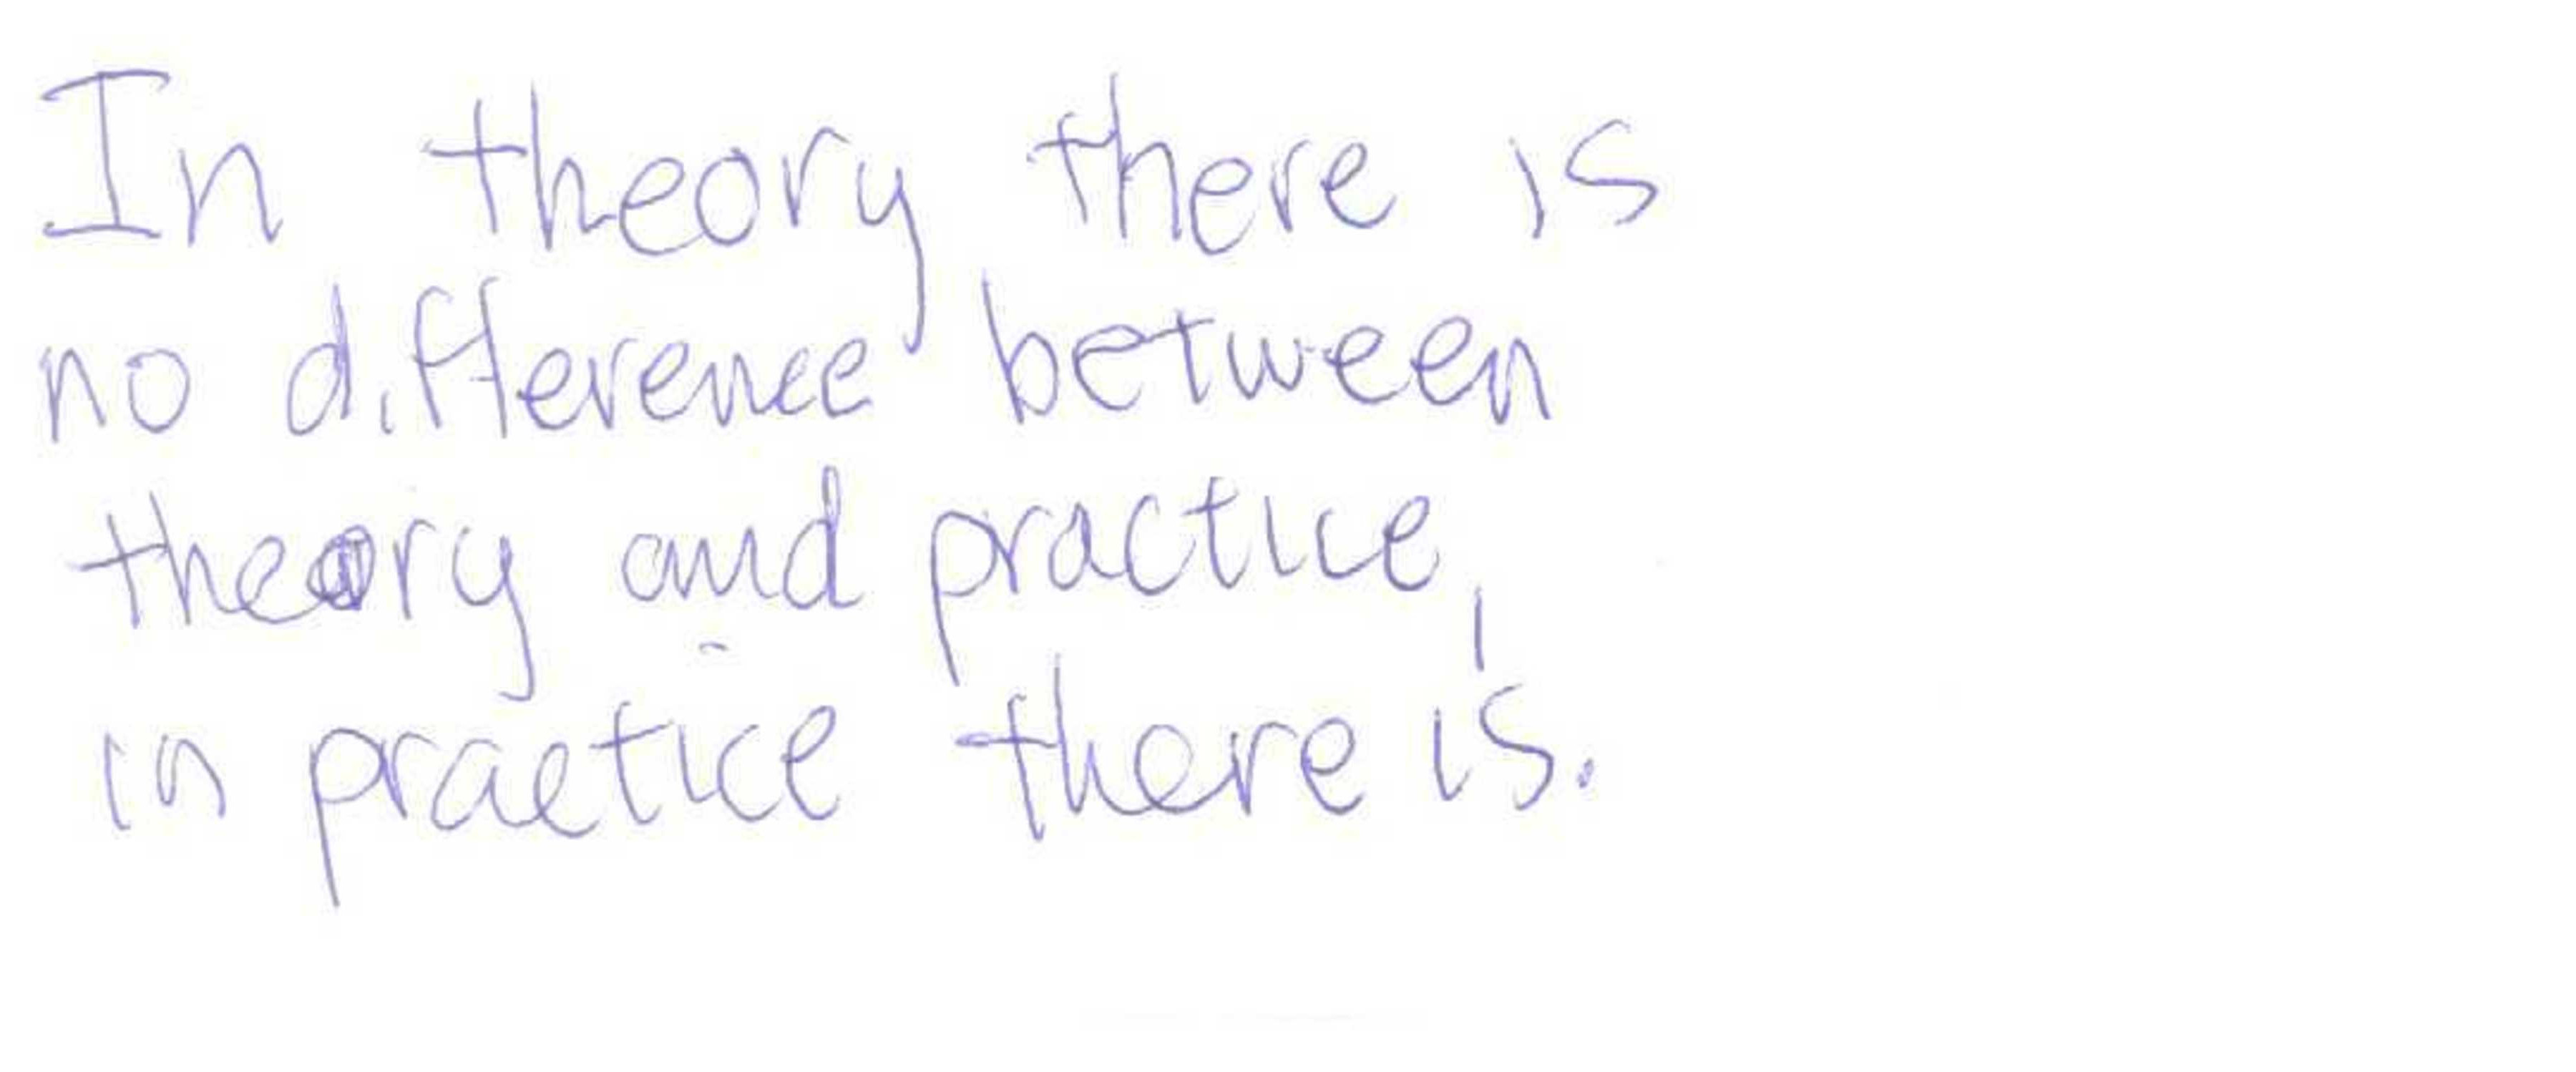 In theory there is
no difference between
theory and practice,
in practice there is.